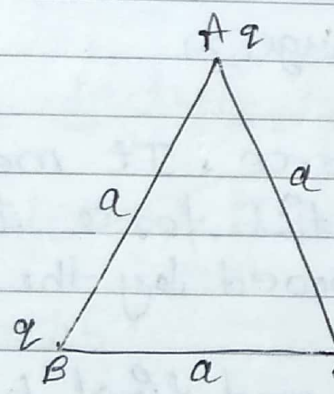 A q
a a
q
B a